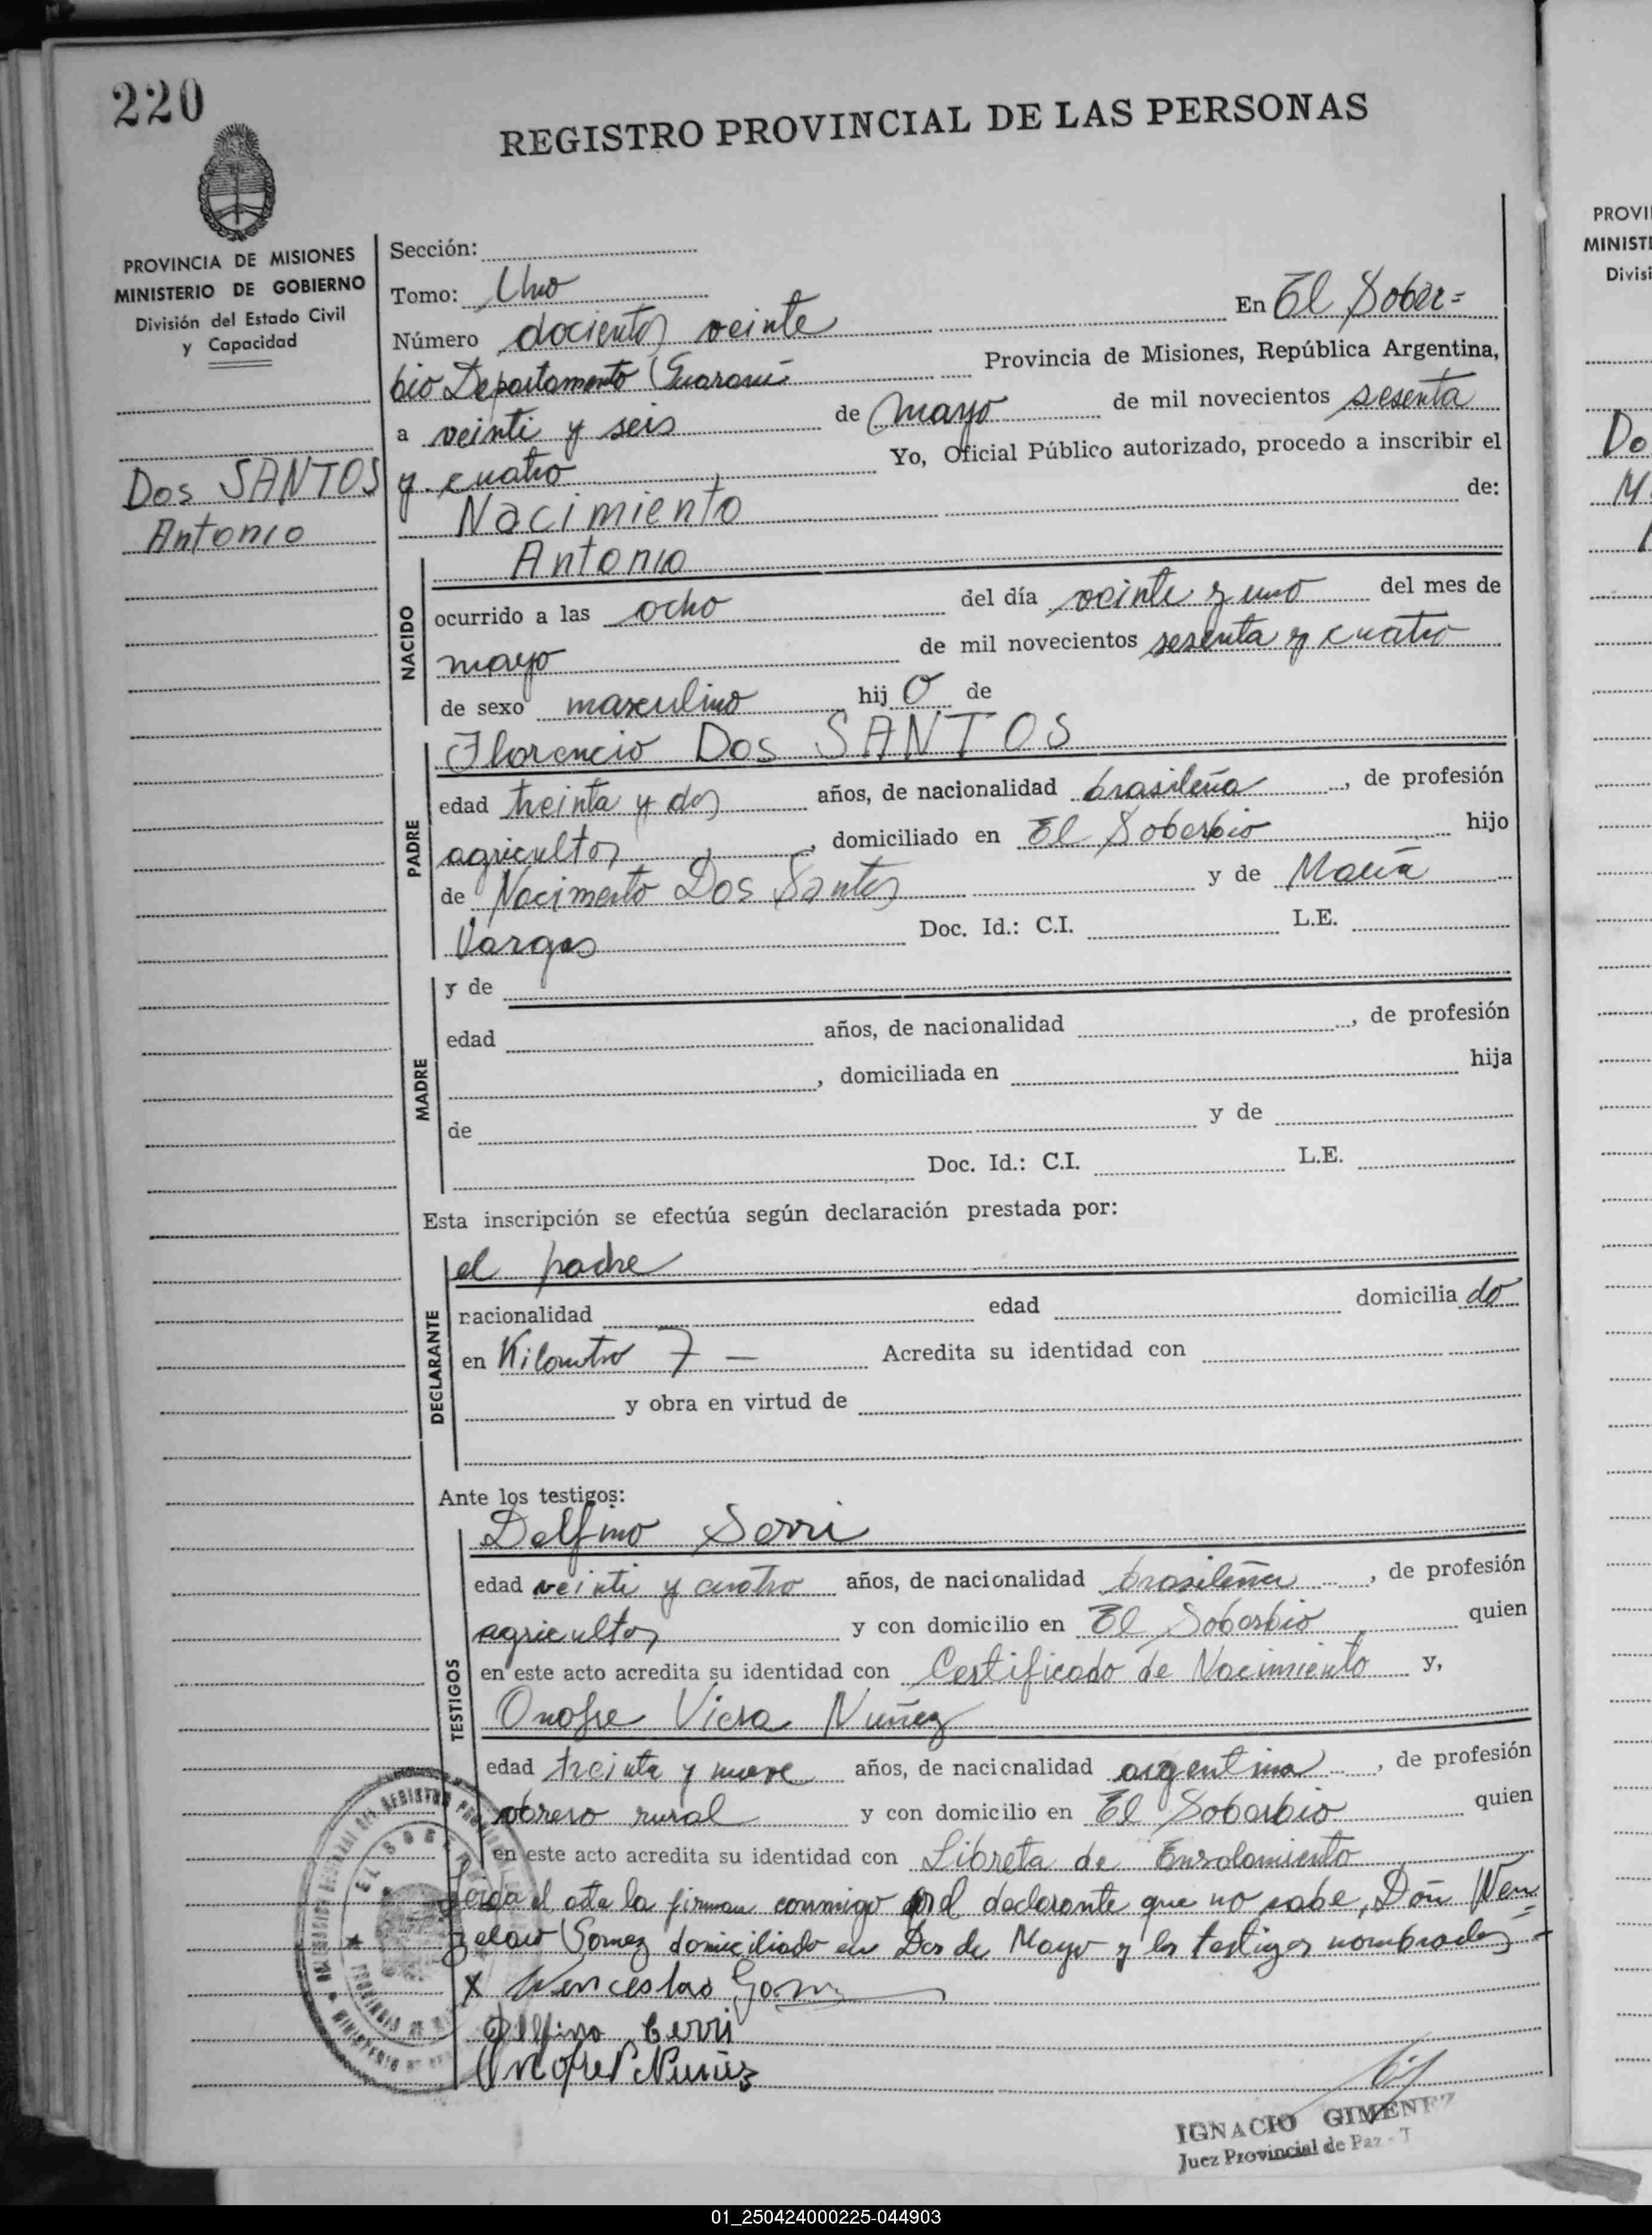 220
REGISTRO PROVINCIAL DE LAS PERSONAS
PROVINCIA DE MISIONES
MINISTERIO DE GOBIERNO
División del Estado Civil
y Capacidad
Dos SANTOS
Antonio
Sección:
Tomo: Uno
Número docientos veinte En El Sober=
bio Departamento Guaraní Provincia de Misiones, República Argentina,
a veinti y seis de mayo de mil novecientos sesenta
y cuatro Yo, Oficial Público autorizado, procedo a inscribir el
Nacimiento de:
NACIDO
Antonio
ocurrido a las ocho del día veinte y uno del mes de
mayo de mil novecientos sesenta y cuatro
de sexo masculino hij o de
PADRE
Florencio Dos SANTOS
edad treinta y dos años, de nacionalidad brasileña, de profesión
agricultor, domiciliado en El Soberbio hijo
de Nacimento Dos Santos y de María
Vargas Doc. Id.: C.I. L.E.
MADRE
y de
edad años, de nacionalidad , de profesión
, domiciliada en hija
de y de
Doc. Id.: C.I. L.E.
Esta inscripción se efectúa según declaración prestada por:
DECLARANTE
el padre
nacionalidad edad domicilia do
en Kilometro 7 — Acredita su identidad con
y obra en virtud de
Ante los testigos:
TESTIGOS
Delfino Serri
edad veinti y cuatro años, de nacionalidad brasileña, de profesión
agricultor y con domicilio en El Soberbio quien
en este acto acredita su identidad con Certificado de Nacimiento y,
Onofre Viera Nuñez
edad treinta y nueve años, de nacionalidad argentina, de profesión
obrero rural y con domicilio en El Soberbio quien
en este acto acredita su identidad con Libreta de Enrolamiento
Leida el acta la firman conmigo por el declarante que no sabe, Don Wen=
zelao Gomez domiciliado en Dos de Mayo y los testigos nombrados -
X Wenceslao Gomez
Delfino Cerri
Onofre V. Nuñez
IGNACIO GIMENEZ
Juez Provincial de Paz - T
PROVI
MINIST
Divisi
Do
M
01_250424000225-044903